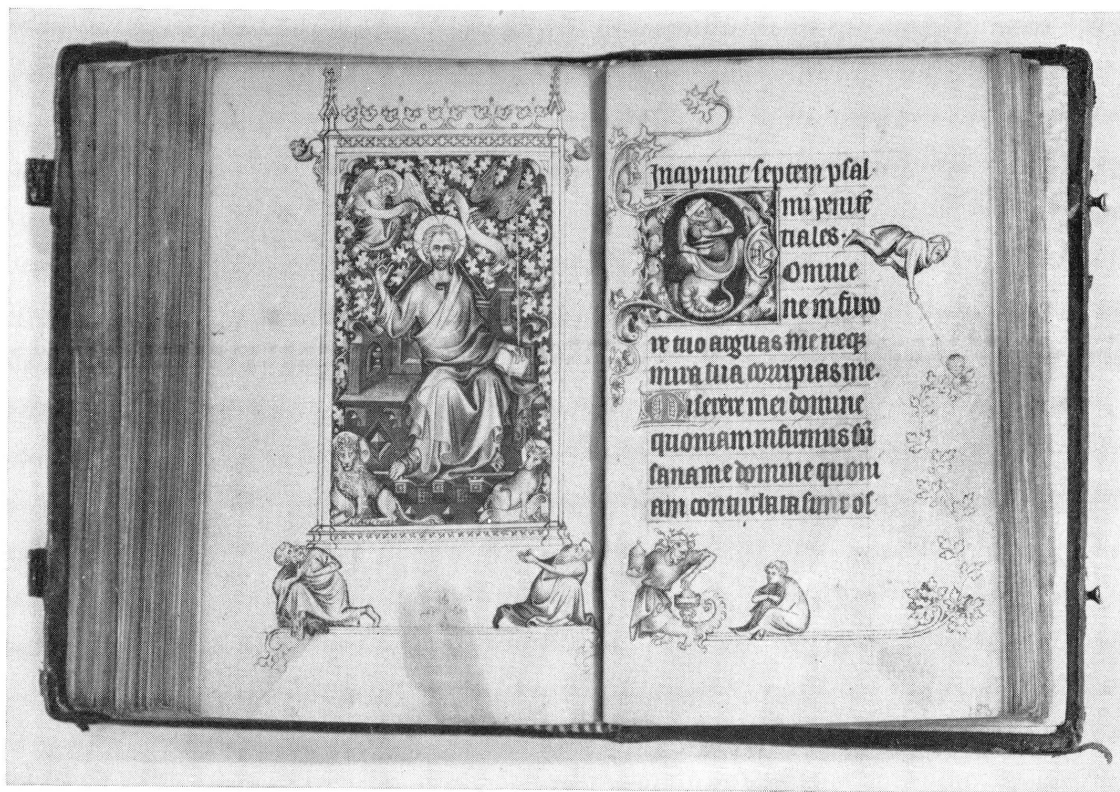 Incipiunt septem psal-
mi penitē
tiales.
Domine
ne in furo
re tuo arguas me neqꝫ
in ira tua corripias me.
Miserere mei domine
quoniam infirmus sū
sana me domine quoni
am conturbata sunt os